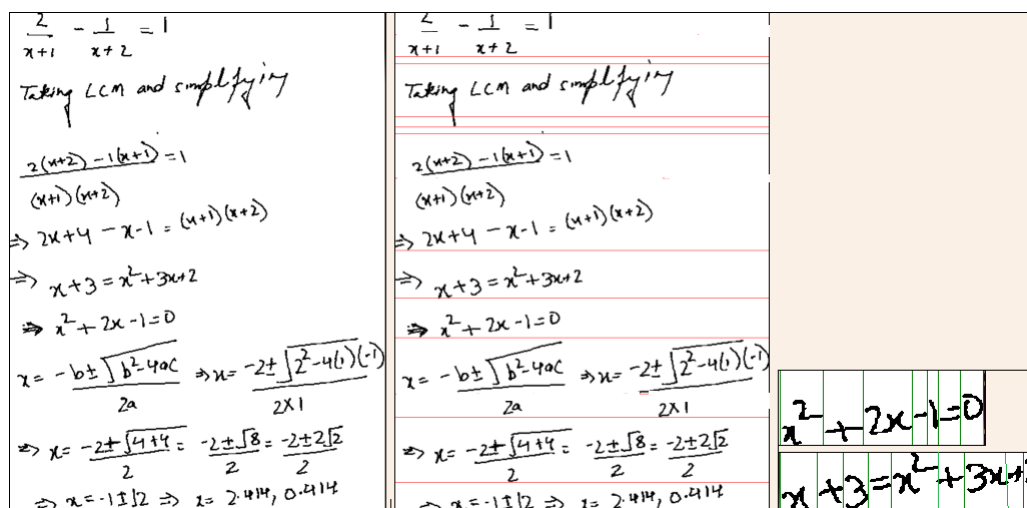 2/(x+1) - 1/(x+2) = 1
Taking LCM and simplifying
(2(x+2) - 1(x+1))/((x+1)(x+2)) = 1
⇒ 2x+4 - x-1 = (x+1)(x+2)
⇒ x+3 = x²+3x+2
⇒ x² + 2x - 1 = 0
x = (-b ± √(b²-4ac))/2a ⇒ x = (-2 ± √(2²-4(1)(-1)))/(2×1)
⇒ x = (-2±√(4+4))/2 = (-2±√8)/2 = (-2±2√2)/2
⇒ x = -1±√2 ⇒ x = 2.414, 0.414
2/(x+1) - 1/(x+2) = 1
Taking LCM and simplifying
(2(x+2) - 1(x+1))/((x+1)(x+2)) = 1
⇒ 2x+4 - x-1 = (x+1)(x+2)
⇒ x+3 = x²+3x+2
⇒ x² + 2x - 1 = 0
x = (-b ± √(b²-4ac))/2a ⇒ x = (-2 ± √(2²-4(1)(-1)))/(2×1)
⇒ x = (-2±√(4+4))/2 = (-2±√8)/2 = (-2±2√2)/2
⇒ x = -1±√2 ⇒ x = 2.414, 0.414
x² + 2x - 1 = 0
x + 3 = x² + 3x +